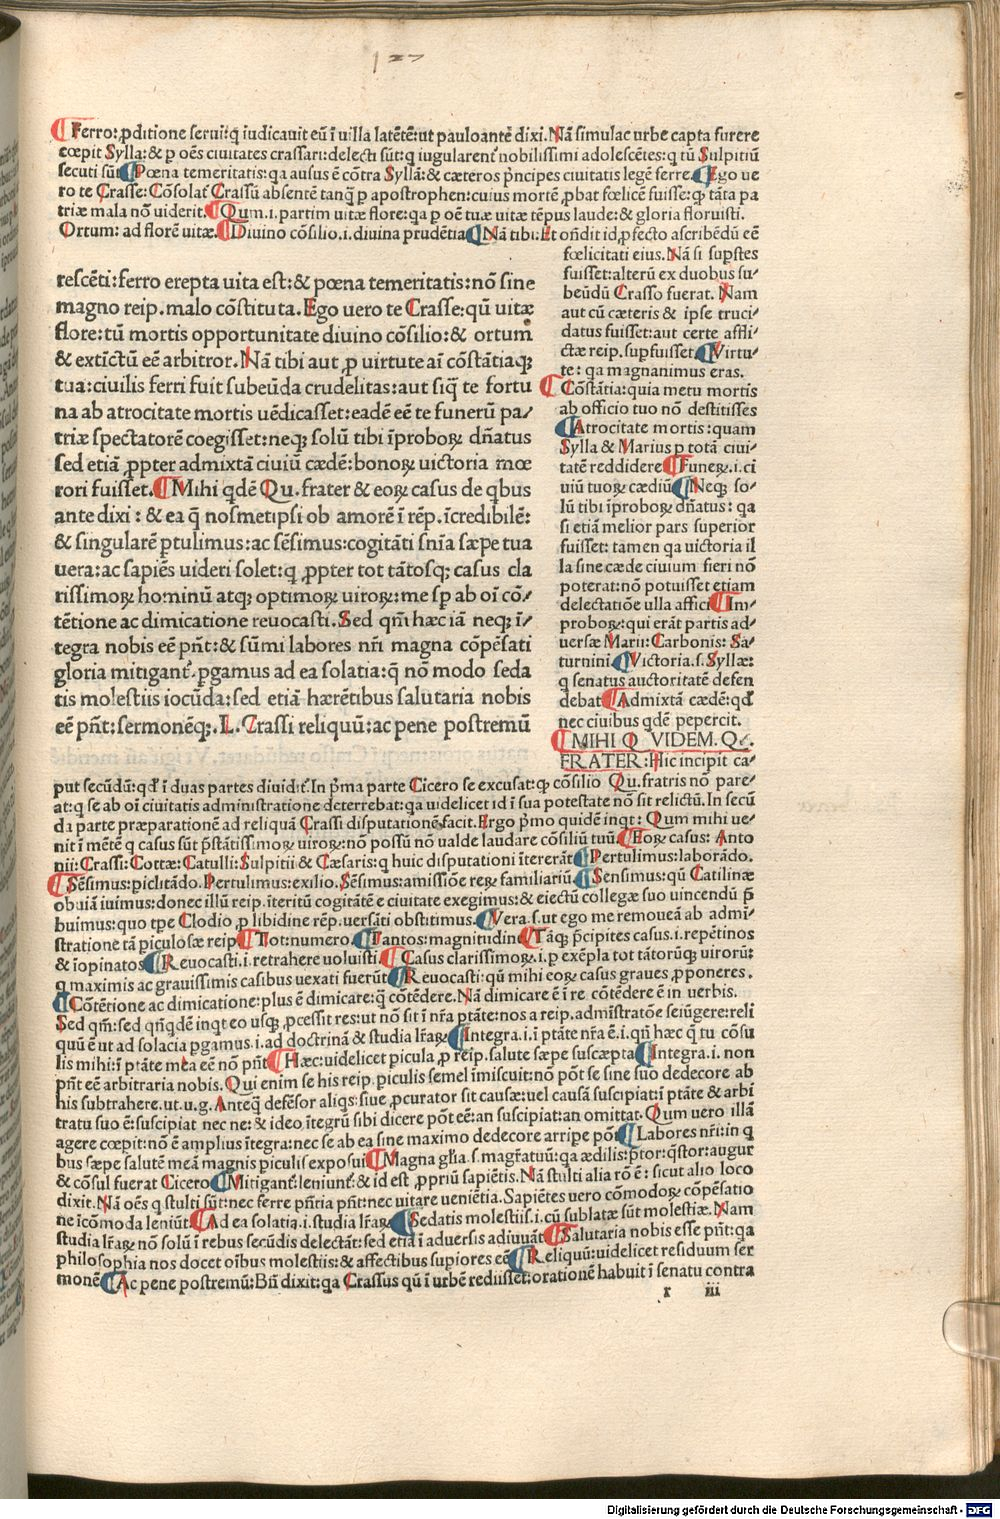 127
¶Ferro: ꝓditione serui: q̃ iudicauit eũ ĩ uilla latẽtẽ: ut pauloantẽ dixi. Nã simulac urbe capta furere
cœpit Sylla: & p oẽs ciuitates crassari: delecti sũt: q iugularent᷑ nobilissimi adolescẽtes: q tũ Sulpitiũ
secuti sũt ¶Pœna temeritatis: qa ausus ẽ cõtra Syllã: & cæteros pͥncipes ciuitatis legẽ ferre. ¶Ego ue
ro te Crasse: Cõsolat᷑ Crassũ absentẽ tanq̃ p apostrophen: cuius mortẽ ꝓbat fœlicẽ fuisse: qꝫ tãta pa
triæ mala nõ uiderit. ¶Qum. i. partim uitæ flore: qa p oẽ tuæ uitæ tẽpus laude: & gloria floruisti.
Ortum: ad florẽ uitæ. ¶Diuino cõsilio. i. diuina prudẽtia ¶Nã tibi: Et oñdit id, ꝓfecto ascribẽdũ eẽ
fœlicitati eius. Nã si supstes
fuisset: alterũ ex duobus su-
beũdũ Crasso fuerat. Nam
aut cũ cæteris & ipse truci-
datus fuisset: aut certe affli-
ctæ reip. supfuisset ¶Virtu-
te: qa magnanimus eras.
¶Cõstãtia: quia metu mortis
ab officio tuo nõ destitisses
¶Atrocitate mortis: quam
Sylla & Marius p totã ciui-
tatẽ reddidere ¶Funeꝝ. i. ci
uiũ tuoꝝ cædiũ ¶Neqꝫ so-
lũ tibi ĩproboꝝ dñatus: qa
si etiã melior pars superior
fuisset: tamen qa uictoria il
la sine cæde ciuium fieri nõ
poterat: nõ potuisset etiam
delectatiõe ulla affici ¶Im-
proboꝝ: qui erãt partis ad-
uersæ Marii: Carbonis: Sa-
turnini ¶Victoria. s. Syllæ:
q senatus auctoritatẽ defen
debat ¶Admixtã cædẽ: qd
nec ciuibus qdẽ pepercit.
¶MIHI Q VIDEM. Q.
FRATER: Hic incipit ca-
rescẽti: ferro erepta uita est: & pœna temeritatis: nõ sine
magno reip. malo cõstituta. Ego uero te Crasse: qũ uitæ
flore: tũ mortis opportunitate diuino cõsilio: & ortum
& extĩctũ eẽ arbitror. Nã tibi aut ꝓ uirtute aĩ cõstãtiaqꝫ
tua: ciuilis ferri fuit subeũda crudelitas: aut siq̃ te fortu
na ab atrocitate mortis uẽdicasset: eadẽ eẽ te funerũ pa-
triæ spectatorẽ coegisset: neqꝫ solũ tibi ĩproboꝝ dñatus
sed etiã ꝓpter admixtã ciuiũ cædẽ: bonoꝝ uictoria mœ
rori fuisset. ¶Mihi qdẽ Qu. frater & eoꝝ casus de qbus
ante dixi: & ea q̃ nosmetipsi ob amorẽ ĩ rẽp. ĩcredibilẽ:
& singularẽ ptulimus: ac sẽsimus: cogitãti sñia sæpe tua
uera: ac sapiẽs uideri solet: q ꝓpter tot tãtosqꝫ casus cla
rissimoꝝ hominũ atqꝫ optimoꝝ uiroꝝ: me sp ab oĩ cõ-
tẽtione ac dimicatione reuocasti. Sed qm̃ hæc iã neqꝫ ĩ-
tegra nobis eẽ pñt: & sũmi labores nr̃i magna cõpẽsati
gloria mitigant᷑. pgamus ad ea solatia: q̃ nõ modo seda
tis molestiis iocũda: sed etiã hærẽtibus salutaria nobis
eẽ pñt: sermonẽqꝫ. L. Crassi reliquũ: ac pene postremũ
put secũdũ: qd ĩ duas partes diuidit᷑. In pͥma parte Cicero se excusat: qꝫ cõsilio Qu. fratris nõ pare-
at: q se ab oĩ ciuitatis administratione deterrebat: qa uidelicet id ĩ sua potestate nõ sit relictũ. In secũ
da parte præparationẽ ad reliquã Crassi disputationẽ facit. Ergo pͥmo quidẽ inqt: Qum mihi ue-
nit ĩ mẽtẽ q casus sũt pͣstãtissimoꝝ uiroꝝ: nõ possũ nõ ualde laudare cõsiliũ tuũ. ¶Eoꝝ casus: Anto
nii: Crassi: Cottæ: Catulli: Sulpitii & Cæsaris: q huic disputationi ĩtererãt ¶Pertulimus: laborãdo.
¶Sẽsimus: piclitãdo. Pertulimus: exilio. Sẽsimus: amissiõe reꝝ familiariũ ¶Sensimus: qũ Catilinæ
obuiã iuimus: donec illũ reip. ĩteritũ cogitãtẽ e ciuitate exegimus: & eiectũ collegæ suo uincendũ p̃
buimus: quo tpe Clodio ꝓ libidine rẽp. uersãti obstitimus. ¶Vera. s. ut ego me remoueã ab admi-
stratione tã piculosæ reip ¶Tot: numero. ¶Tantos: magnitudine ¶Tãqꝫ pͥcipites casus. i. repẽtinos
& ĩopinatos ¶Reuocasti. i. retrahere uoluisti. ¶Casus clarissimoꝝ. i. p exẽpla tot tãtorũqꝫ uirorũ:
q maximis ac grauissimis casibus uexati fuerũt ¶Reuocasti: qũ mihi eoꝝ casus graues ꝓponeres.
¶Cõtẽtione ac dimicatione: plus ẽ dimicare: q̃ cõtẽdere. Nã dimicare ẽ ĩ re cõtẽdere ẽ in uerbis.
Sed qm̃: sed qñqdẽ inqt eo usqꝫ ꝓcessit res: ut nõ sit ĩ nr̃a ptãte: nos a reip. admĩstratõe seiũgere: reli
quũ ẽ ut ad solacia pgamus. i. ad doctrinã & studia lr̃aꝝ ¶Integra. i. ĩ ptãte nr̃a ẽ. i. qũ hæc q̃ tu cõsu
lis mihi: ĩ ptãte mea eẽ nõ pñt ¶Hæc: uidelicet picula ꝓ reip. salute sæpe suscæpta ¶Integra. i. non
pñt eẽ arbitraria nobis. Qui enim se his reip. piculis semel ĩmiscuit: nõ põt se sine suo dedecore ab
his subtrahere. ut. u. g. Anteq̃ defẽsor aliqs: siue ꝓcurator sit causæ: uel causã suscipiat: ĩ ptãte & arbi
tratu suo ẽ: suscipiat nec ne: & ideo ĩtegrũ sibi dicere põt eẽ: an suscipiat: an omittat. Qum uero illã
agere cœpit: nõ ẽ amplius ĩtegra: nec se ab ea sine maximo dedecore arripe põt ¶Labores nr̃i: in q
bus sæpe salutẽ meã magnis piculis exposui ¶Magna gl̃ia. s. magr̃atuũ: qa ædilis: ptor: qstor: augur
& cõsul fuerat Cicero ¶Mitigant᷑: leniunt᷑: & id est ꝓpriũ sapiẽtis. Nã stulti alia rõ ẽ: sicut alio loco
dixit. Nã oẽs q stulti sũt: nec ferre pñtia pñt: nec uitare ueniẽtia. Sapiẽtes uero cõmodoꝝ cõpẽsatio
ne ĩcõmoda leniũt. ¶Ad ea solatia. i. studia lr̃aꝝ ¶Sedatis molestiis. i. cũ sublatæ sũt molestiæ. Nam
studia lr̃aꝝ nõ solũ ĩ rebus secũdis delectãt: sed etiã ĩ aduersis adiuuãt ¶Salutaria nobis esse pñt: qa
philosophia nos docet oĩbus molestiis: & affectibus supiores eẽ ¶Reliquũ: uidelicet residuum ser
monẽ ¶Ac pene postremũ: Bñ dixit: qa Crassus qũ ĩ urbẽ rediisset: orationẽ habuit ĩ senatu contra
r iii
Digitalisierung gefördert durch die Deutsche Forschungsgemeinschaft - DFG